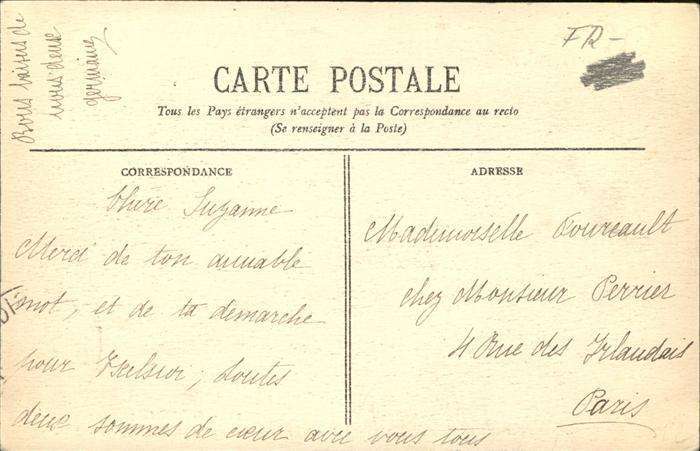 Bons baisers de
nous deux
Germaine
FR-
CARTE POSTALE
Tous les Pays étrangers n'acceptent pas la Correspondance au recto
(Se renseigner à la Poste)
CORRESPONDANCE
Chère Suzanne
Merci de ton aimable
mot, et de ta demarche
pour Excelsior, toutes
deux sommes de cœur avec vous tous
ADRESSE
Mademoiselle Fourcault
chez Monsieur Perrier
4 Rue des Irlandais
Paris